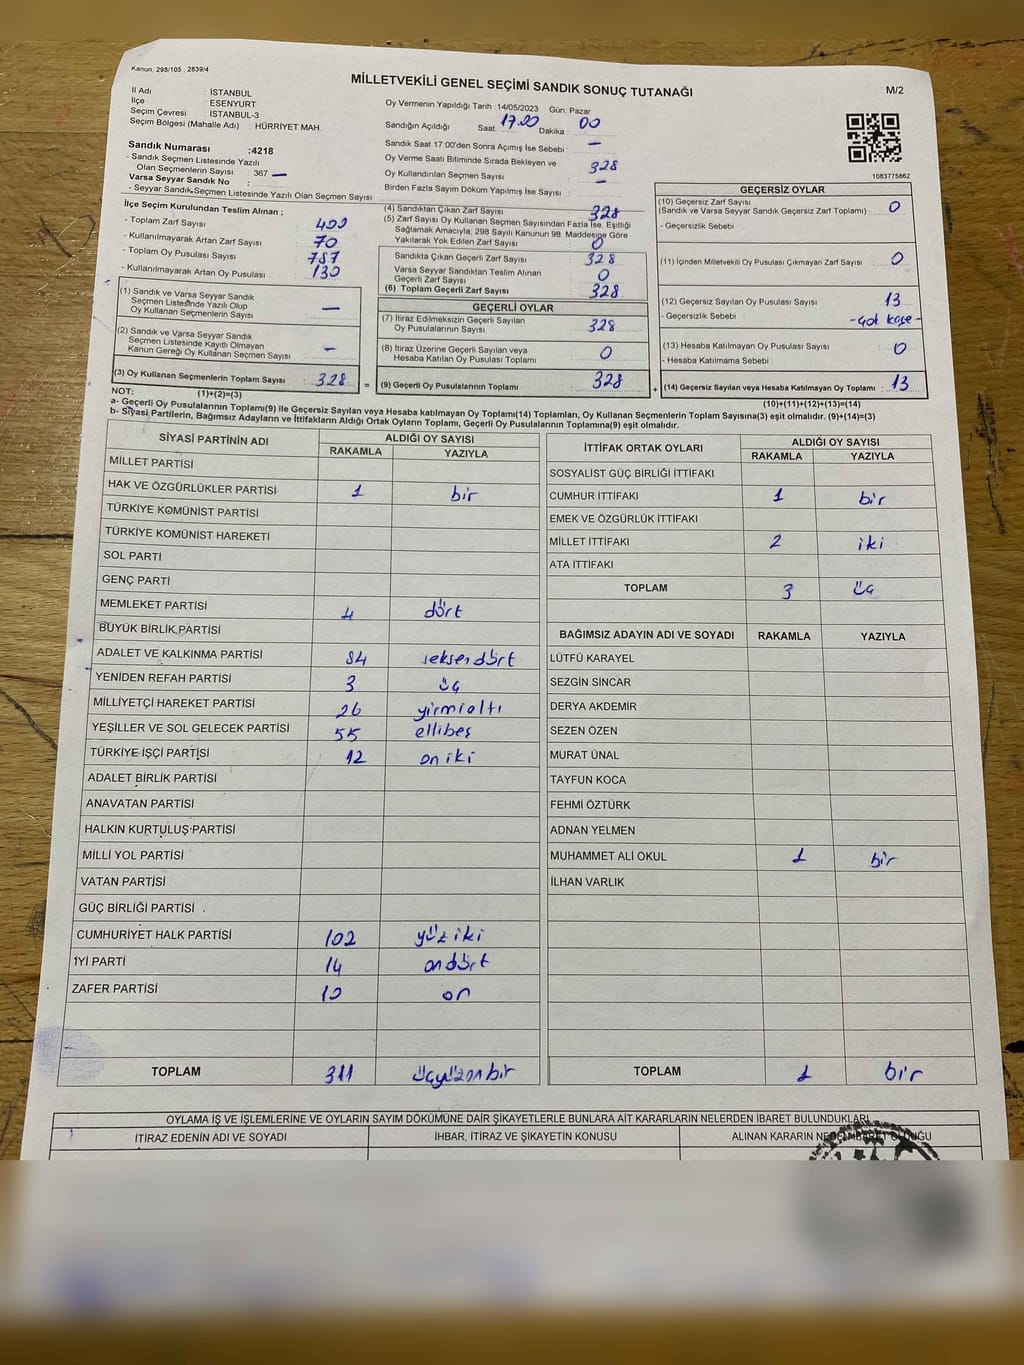 Kanun: 298/105 , 2839/4
MİLLETVEKİLİ GENEL SEÇİMİ SANDIK SONUÇ TUTANAĞI
M/2
İl Adı : İSTANBUL
İlçe : ESENYURT
Seçim Çevresi : İSTANBUL-3
Seçim Bölgesi (Mahalle Adı) : HÜRRİYET MAH.
Sandık Numarası :4218
- Sandık Seçmen Listesinde Yazılı
Olan Seçmenlerin Sayısı : 367 —
Varsa Seyyar Sandık No : —
- Seyyar Sandık Seçmen Listesinde Yazılı Olan Seçmen Sayısı
Oy Vermenin Yapıldığı Tarih :14/05/2023 Gün: Pazar
Sandığın Açıldığı Saat 17.00 Dakika : 00
Sandık Saat 17:00'den Sonra Açımış İse Sebebi : —
Oy Verme Saati Bitiminde Sırada Bekleyen ve
Oy Kullandırılan Seçmen Sayısı : 328
Birden Fazla Sayım Döküm Yapılmış İse Sayısı : —
1083775862
İlçe Seçim Kurulundan Teslim Alınan ;
- Toplam Zarf Sayısı : 400
- Kullanılmayarak Artan Zarf Sayısı : 70
- Toplam Oy Pusulası Sayısı : 787
- Kullanılmayarak Artan Oy Pusulası : 130
(1) Sandık ve Varsa Seyyar Sandık
Seçmen Listesinde Yazılı Olup
Oy Kullanan Seçmenlerin Sayısı : —
(2) Sandık ve Varsa Seyyar Sandık
Seçmen Listesinde Kayıtlı Olmayan
Kanun Gereği Oy Kullanan Seçmen Sayısı : —
(3) Oy Kullanan Seçmenlerin Toplam Sayısı : 328 =
(1)+(2)=(3)
(4) Sandıktan Çıkan Zarf Sayısı : 328
(5) Zarf Sayısı Oy Kullanan Seçmen Sayısından Fazla İse, Eşitliği
Sağlamak Amacıyla; 298 Sayılı Kanunun 98. Maddesine Göre
Yakılarak Yok Edilen Zarf Sayısı : 0
Sandıkta Çıkan Geçerli Zarf Sayısı : 328
Varsa Seyyar Sandıktan Teslim Alınan
Geçerli Zarf Sayısı : 0
(6) Toplam Geçerli Zarf Sayısı : 328
GEÇERLİ OYLAR
(7) İtiraz Edilmeksizin Geçerli Sayılan
Oy Pusulalarının Sayısı : 328
(8) İtiraz Üzerine Geçerli Sayılan veya
Hesaba Katılan Oy Pusulası Toplamı : 0
(9) Geçerli Oy Pusulalarının Toplamı : 328 +
GEÇERSİZ OYLAR
(10) Geçersiz Zarf Sayısı
(Sandık ve Varsa Seyyar Sandık Geçersiz Zarf Toplamı) : 0
- Geçersizlik Sebebi
(11) İçinden Milletvekili Oy Pusulası Çıkmayan Zarf Sayısı : 0
(12) Geçersiz Sayılan Oy Pusulası Sayısı : 13
- Geçersizlik Sebebi :
(13) Hesaba Katılmayan Oy Pusulası Sayısı : 0
- Hesaba Katılmama Sebebi :
(14) Geçersiz Sayılan veya Hesaba Katılmayan Oy Toplamı : 13
(10)+(11)+(12)+(13)=(14)
NOT:
a- Geçerli Oy Pusulalarının Toplamı(9) ile Geçersiz Sayılan veya Hesaba katılmayan Oy Toplamı(14) Toplamları, Oy Kullanan Seçmenlerin Toplam Sayısına(3) eşit olmalıdır. (9)+(14)=(3)
b- Siyasi Partilerin, Bağımsız Adayların ve İttifakların Aldığı Ortak Oyların Toplamı, Geçerli Oy Pusulalarının Toplamına(9) eşit olmalıdır.
SİYASİ PARTİNİN ADI ALDIĞI OY SAYISI
RAKAMLA YAZIYLA
MİLLET PARTİSİ
HAK VE ÖZGÜRLÜKLER PARTİSİ 1 bir
TÜRKİYE KOMÜNİST PARTİSİ
TÜRKİYE KOMÜNİST HAREKETİ
SOL PARTİ
GENÇ PARTİ
MEMLEKET PARTİSİ 4 dört
BÜYÜK BİRLİK PARTİSİ
ADALET VE KALKINMA PARTİSİ 84 seksendört
YENİDEN REFAH PARTİSİ 3 üç
MİLLİYETÇİ HAREKET PARTİSİ 26 yirmialtı
YEŞİLLER VE SOL GELECEK PARTİSİ 55 ellibeş
TÜRKİYE İŞÇİ PARTİSİ 12 on iki
ADALET BİRLİK PARTİSİ
ANAVATAN PARTİSİ
HALKIN KURTULUŞ PARTİSİ
MİLLİ YOL PARTİSİ
VATAN PARTİSİ
GÜÇ BİRLİĞİ PARTİSİ
CUMHURİYET HALK PARTİSİ 102 yüz iki
İYİ PARTİ 14 ondört
ZAFER PARTİSİ 10 on
TOPLAM 311 üçyüzonbir
İTTİFAK ORTAK OYLARI ALDIĞI OY SAYISI
RAKAMLA YAZIYLA
SOSYALİST GÜÇ BİRLİĞİ İTTİFAKI
CUMHUR İTTİFAKI 1 bir
EMEK VE ÖZGÜRLÜK İTTİFAKI
MİLLET İTTİFAKI 2 iki
ATA İTTİFAKI
TOPLAM 3 üç
BAĞIMSIZ ADAYIN ADI VE SOYADI RAKAMLA YAZIYLA
LÜTFÜ KARAYEL
SEZGİN SİNCAR
DERYA AKDEMİR
SEZEN ÖZEN
MURAT ÜNAL
TAYFUN KOCA
FEHMİ ÖZTÜRK
ADNAN YELMEN
MUHAMMET ALİ OKUL 1 bir
İLHAN VARLIK
TOPLAM 1 bir
OYLAMA İŞ VE İŞLEMLERİNE VE OYLARIN SAYIM DÖKÜMÜNE DAİR ŞİKAYETLERLE BUNLARA AİT KARARLARIN NELERDEN İBARET BULUNDUKLARI
İTİRAZ EDENİN ADI VE SOYADI İHBAR, İTİRAZ VE ŞİKAYETİN KONUSU ALINAN KARARIN NEDEN İBARET OLDUĞU